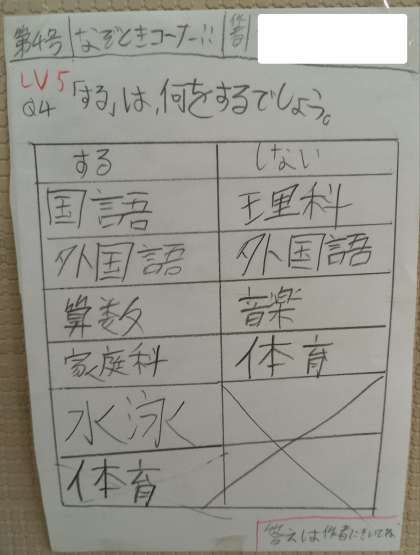 第4号 なぞときコーナー!! 作者
LV5
Q4 「する」は、何をするでしょう。
する しない
国語 理科
外国語 外国語
算数 音楽
家庭科 体育
水泳
体育
答えは作者にきいてね